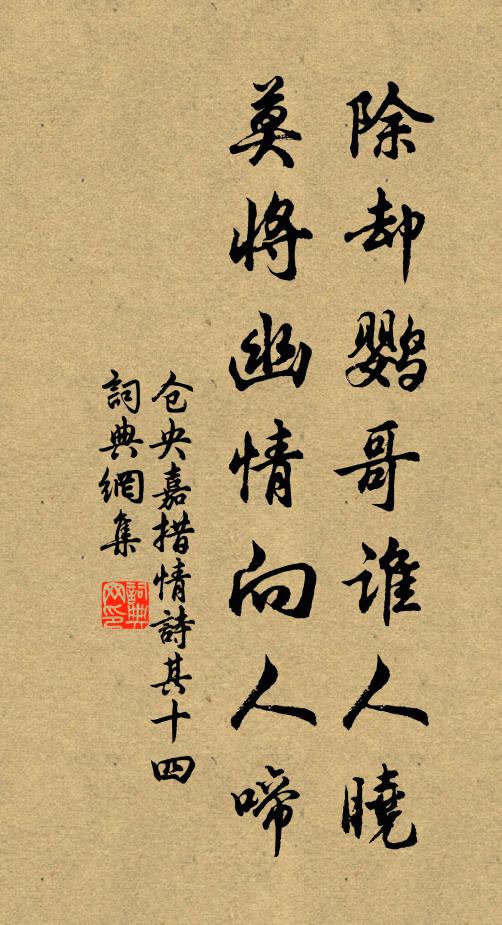 除却鹦哥谁人曉
莫将幽情向人啼
仓央嘉措情詩其十四
詞典網集
詞典网印